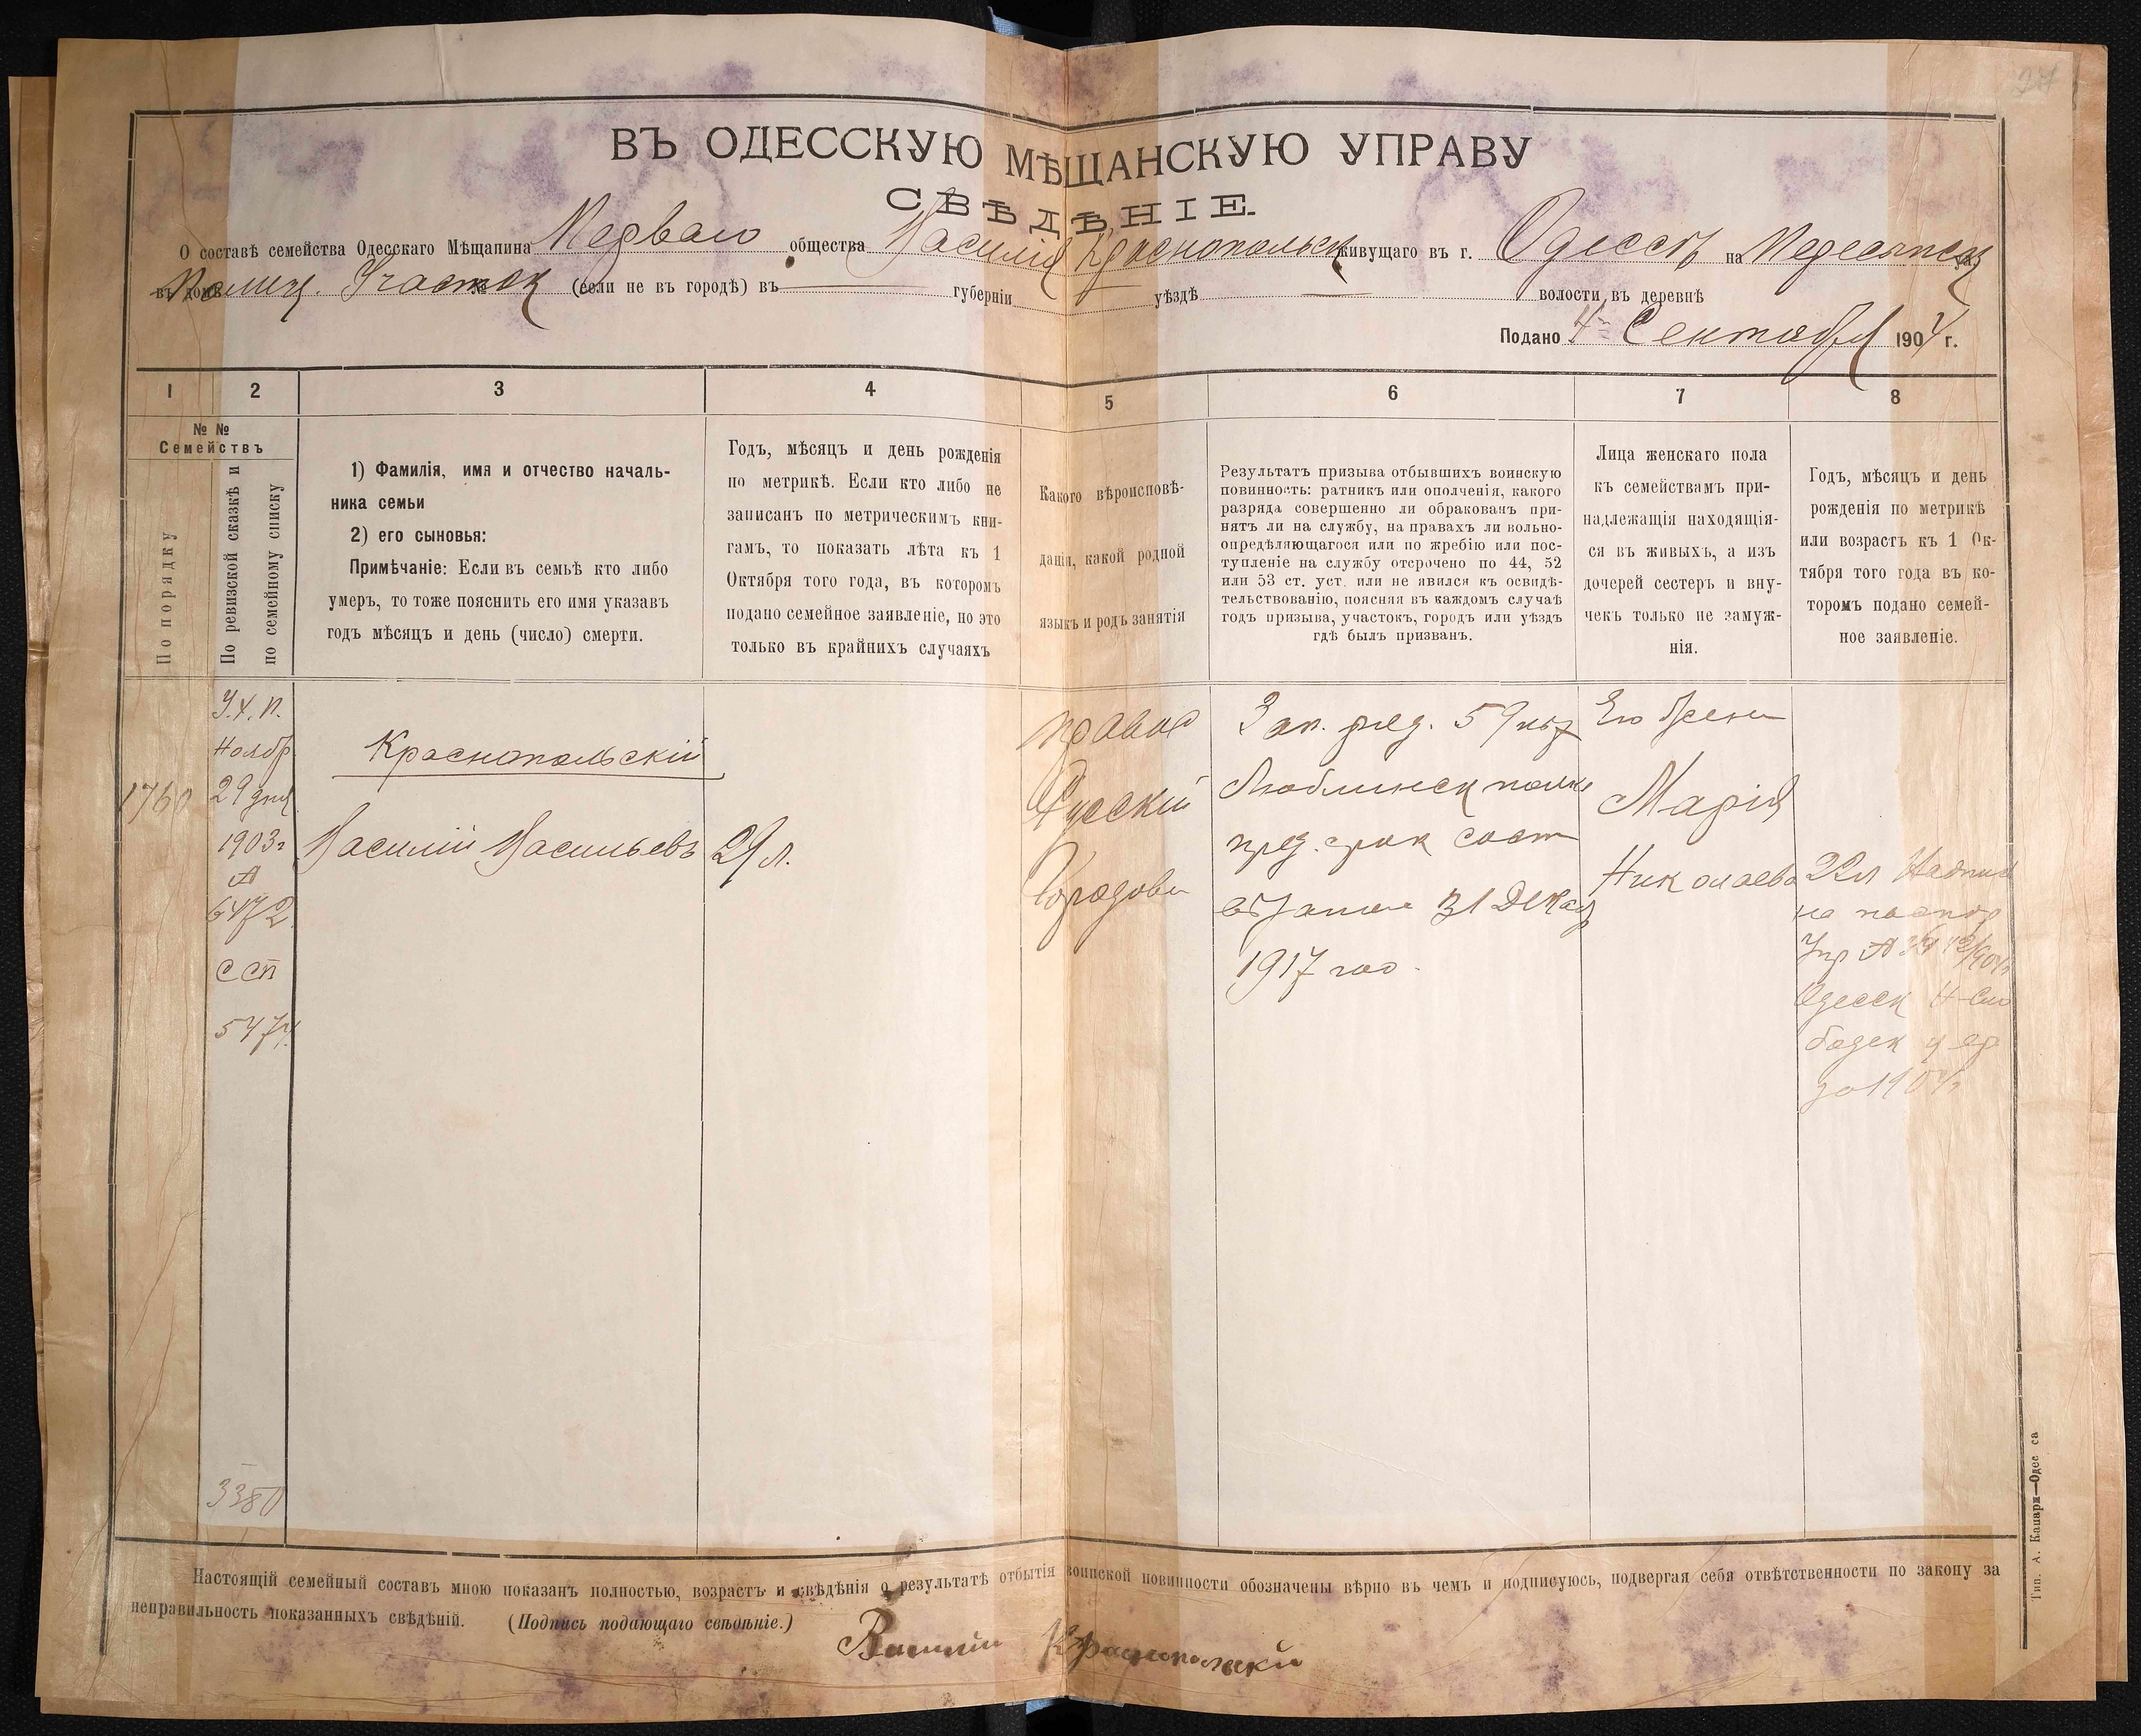 27
ВЪ ОДЕССКУЮ МѢЩАНСКУЮ УПРАВУ
СВѢДѢНІЕ.
О составѣ семейства Одесскаго Мѣщанина Перваго общества Василія Краснопольск живущаго въ г. Одессѣ на Пересыпск ул.
въ домѣ Полиц. Участок № (если не въ городѣ) въ губерніи уѣздѣ волости, въ деревнѣ
Подано 4го Сентября 1904 г.
1 2 3 4 5 6 7 8
№ №
Семействъ
По порядку
По ревизской сказкѣ и
по семейному списку
1) Фамилія, имя и отчество началь-
ника семьи
2) его сыновья:
Примѣчаніе: Если въ семьѣ кто либо
умеръ, то тоже пояснить его имя указавъ
годъ мѣсяцъ и день (число) смерти.
Годъ, мѣсяцъ и день рожденія
по метрикѣ. Если кто либо не
записанъ по метрическимъ кни-
гамъ, то показать лѣта къ 1
Октября того года, въ которомъ
подано семейное заявленіе, но это
только въ крайнихъ случаяхъ
Какого вѣроисповѣ-
данія, какой родной
языкъ и родъ занятія
Результатъ призыва отбывшихъ воинскую
повинность: ратникъ или ополченія, какого
разряда совершенно ли обракованъ при-
нятъ ли на службу, на правахъ ли вольно-
опредѣляющагося или по жребію или пос-
тупленіе на службу отсрочено по 44, 52
или 53 ст. уст. или не явился къ освидѣ-
тельствованію, поясняя въ каждомъ случаѣ
годъ призыва, участокъ, городъ или уѣздъ
гдѣ былъ призванъ.
Лица женскаго пола
къ семействамъ при-
надлежащія находящія-
ся въ живыхъ, а изъ
дочерей сестеръ и вну-
чекъ только не замуж-
нія.
Годъ, мѣсяцъ и день
рожденія по метрикѣ
или возрастъ къ 1 Ок-
тября того года въ ко-
торомъ подано семей-
ное заявленіе.
1760
У.Х.П.
Ноябр
29 дня
1903г
№
6472
ССП
5474
3380
Краснопольскій
Василій Васильевъ
29 л.
правос
Русскій
Городови
Зап. ряд. 59 пѣх
Люблинск полка
пред. срок сост
въ запасе 31 Декаб
1917 год.
Его жена
Марія
Николаева
22л
на паспор
Упр №
Одесск Н-Сло
бодск ц ер
за 1904г
Настоящій семейный составъ мною показанъ полностью, возрастъ и свѣдѣнія о результатѣ отбытія воинской повинности обозначены вѣрно въ чемъ и подписуюсь, подвергая себя отвѣтственности по закону за
неправильность показанныхъ свѣдѣній. (Подпись подающаго свѣдѣніе.)
Василій Краснопольскій
Тип. А. Канари—Одес са